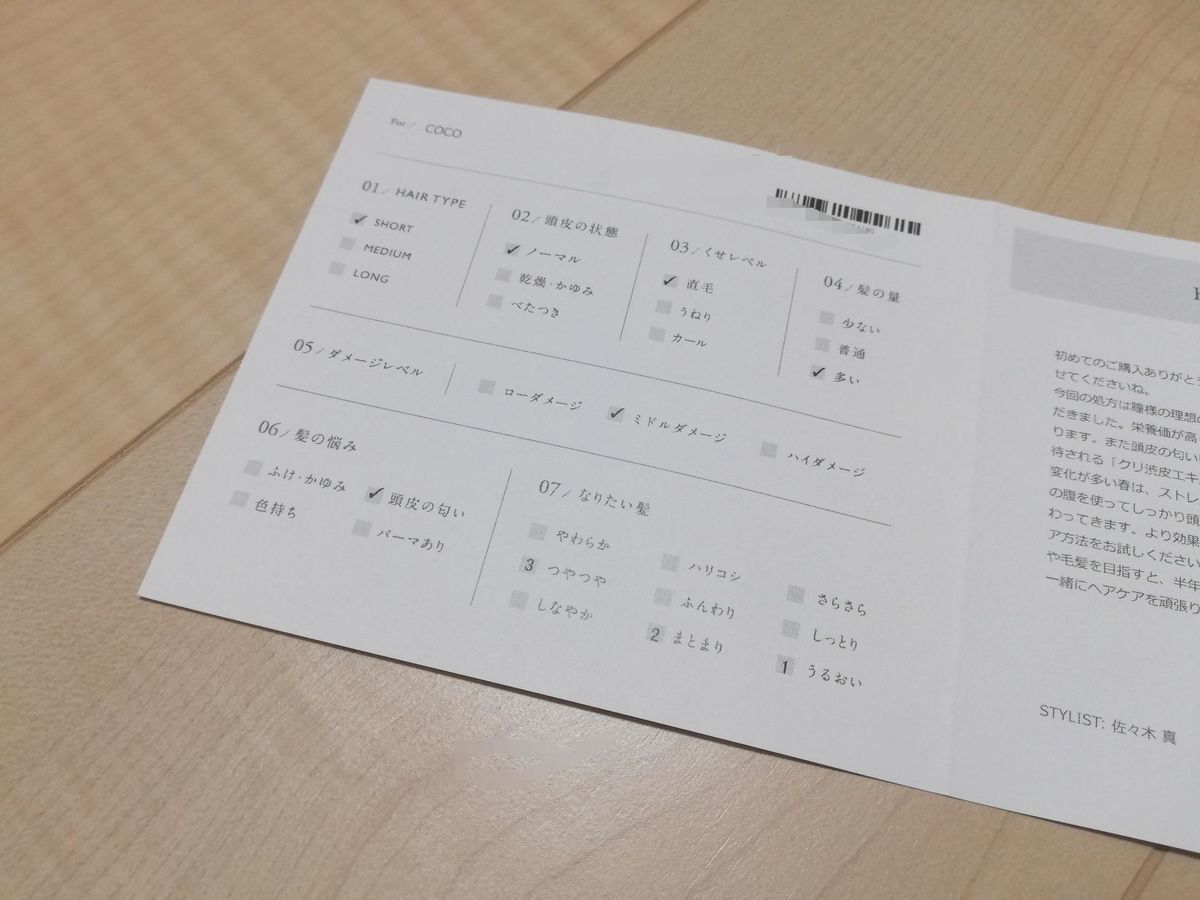 For / COCO
01 / HAIR TYPE
✓ SHORT
MEDIUM
LONG
02 / 頭皮の状態
✓ ノーマル
乾燥・かゆみ
べたつき
03 / くせレベル
✓ 直毛
うねり
カール
04 / 髪の量
少ない
普通
✓ 多い
05 / ダメージレベル
ローダメージ ✓ ミドルダメージ ハイダメージ
06 / 髪の悩み
ふけ・かゆみ ✓ 頭皮の匂い
色持ち パーマあり
07 / なりたい髪
やわらか ハリコシ さらさら
3 つやつや ふんわり しっとり
しなやか 2 まとまり 1 うるおい
初めてのご購入ありがと
せてくださいね。
今回の処方は瞳様の理想の
だきました。栄養価が高
ります。また頭皮の匂い
待される「クリ渋皮エキ
変化が多い春は、ストレ
の腹を使ってしっかり頭
わってきます。より効果
ア方法をお試しください
や毛髪を目指すと、半年
一緒にヘアケアを頑張り
STYLIST: 佐々木 真